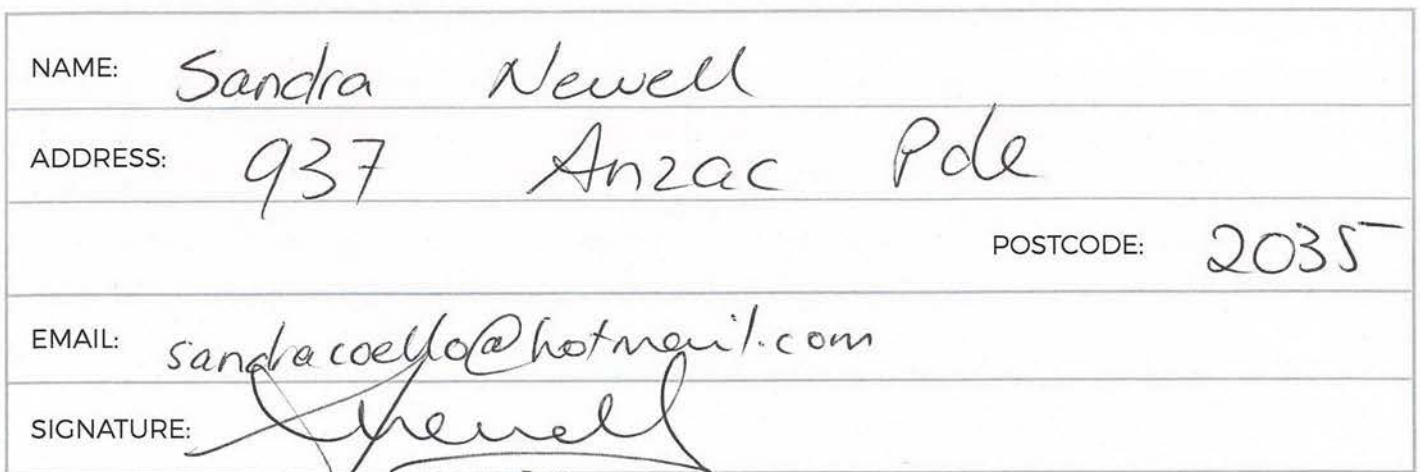 NAME: Sandra Newell
ADDRESS: 937 Anzac Pde
POSTCODE: 2035
EMAIL: sandracoello@hotmail.com
SIGNATURE: Newell